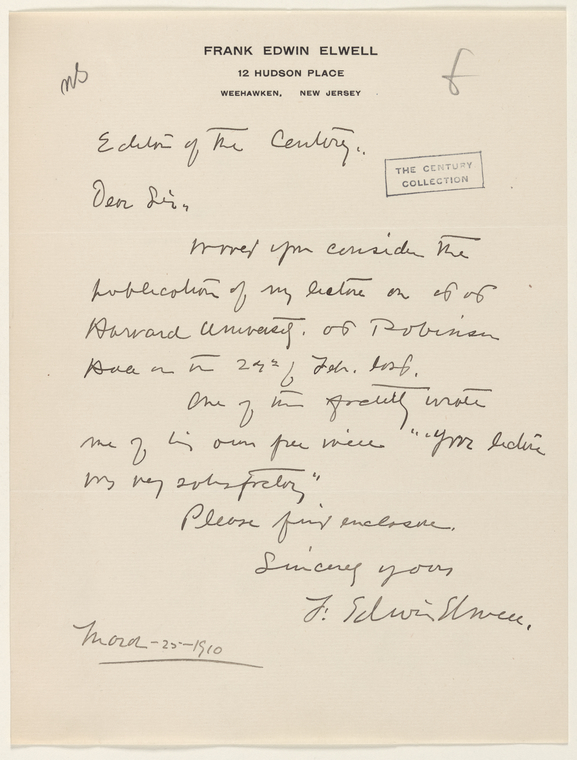 FRANK EDWIN ELWELL
12 HUDSON PLACE
WEEHAWKEN, NEW JERSEY
Editor of the Century.
THE CENTURY
COLLECTION
Dear Sir,
Would you consider the
publication of my lecture on
Harvard University. at Robinson
Hall on the of Feb. last.
One of the faculty wrote
me of his own free will "Your lecture
was very satisfactory"
Please find enclosure.
Sincerely yours
F. Edwin Elwell.
March-25-1910